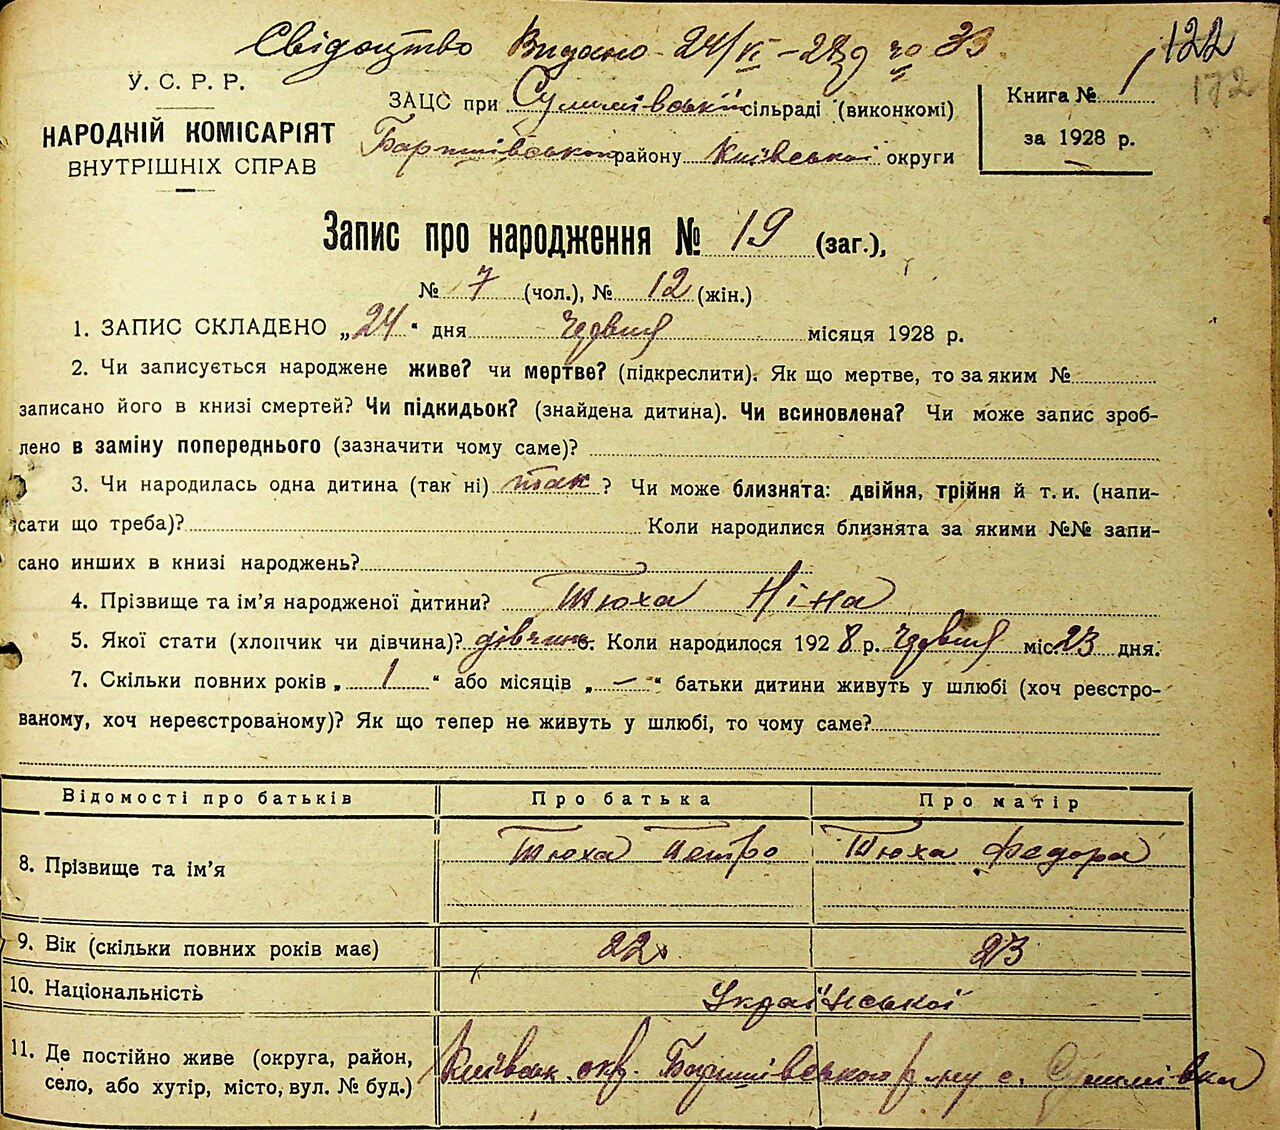 Свідоцтво Видано 24/VI – 28 р № 33
122
172
У. С. Р. Р.
НАРОДНІЙ КОМІСАРІЯТ
ВНУТРІШНІХ СПРАВ
ЗАЦС при Сулимівській сільраді (виконкомі)
Баришівського району Київської округи
Книга № 1
за 1928 р.
Запис про народження № 19 (заг.),
№ 7 (чол.), № 12 (жін.)
1. ЗАПИС СКЛАДЕНО „24“ дня червня місяця 1928 р.
2. Чи записується народжене живе? чи мертве? (підкреслити). Як що мертве, то за яким №
записано його в книзі смертей? Чи підкидьок? (знайдена дитина). Чи всиновлена? Чи може запис зроб-
лено в заміну попереднього (зазначити чому саме)?
3. Чи народилась одна дитина (так ні) так? Чи може близнята: двійня, трійня й т. и. (напи-
сати що треба)? Коли народилися близнята за якими №№ запи-
сано инших в книзі народжень?
4. Прізвище та ім’я народженої дитини? Тюха Ніна
5. Якої стати (хлопчик чи дівчина)? дівчина 6. Коли народилося 1928 р. червня міс. 23 дня.
7. Скільки повних років „1“ або місяців „—“ батьки дитини живуть у шлюбі (хоч реєстро-
ваному, хоч нереєстрованому)? Як що тепер не живуть у шлюбі, то чому саме?
Відомості про батьків Про батька Про матір
8. Прізвище та ім’я Тюха Петро Тюха Федора
9. Вік (скільки повних років має) 22 23
10. Національність Української
11. Де постійно живе (округа, район, Київськ. окр. Баришівського р-ну с. Сулимівка
село, або хутір, місто, вул. № буд.)